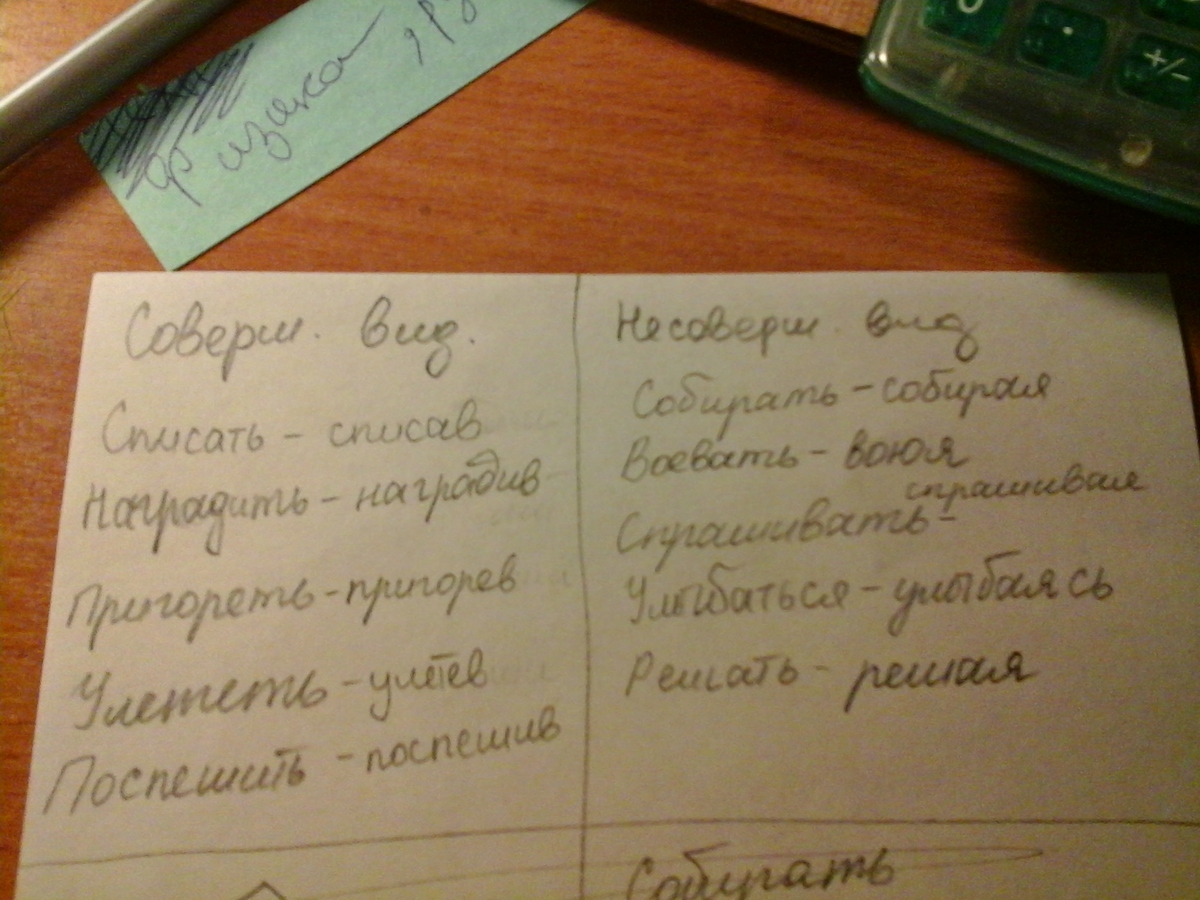 физика
+/-
Соверш. вид.
Списать - списав
Наградить - наградив
Пригореть - пригорев
Улететь - улетев
Поспешить - поспешив
Несоверш. вид
Собирать - собирая
Воевать - воюя
спрашивая
Спрашивать -
Улыбаться - улыбаясь
Решать - решая
Собирать